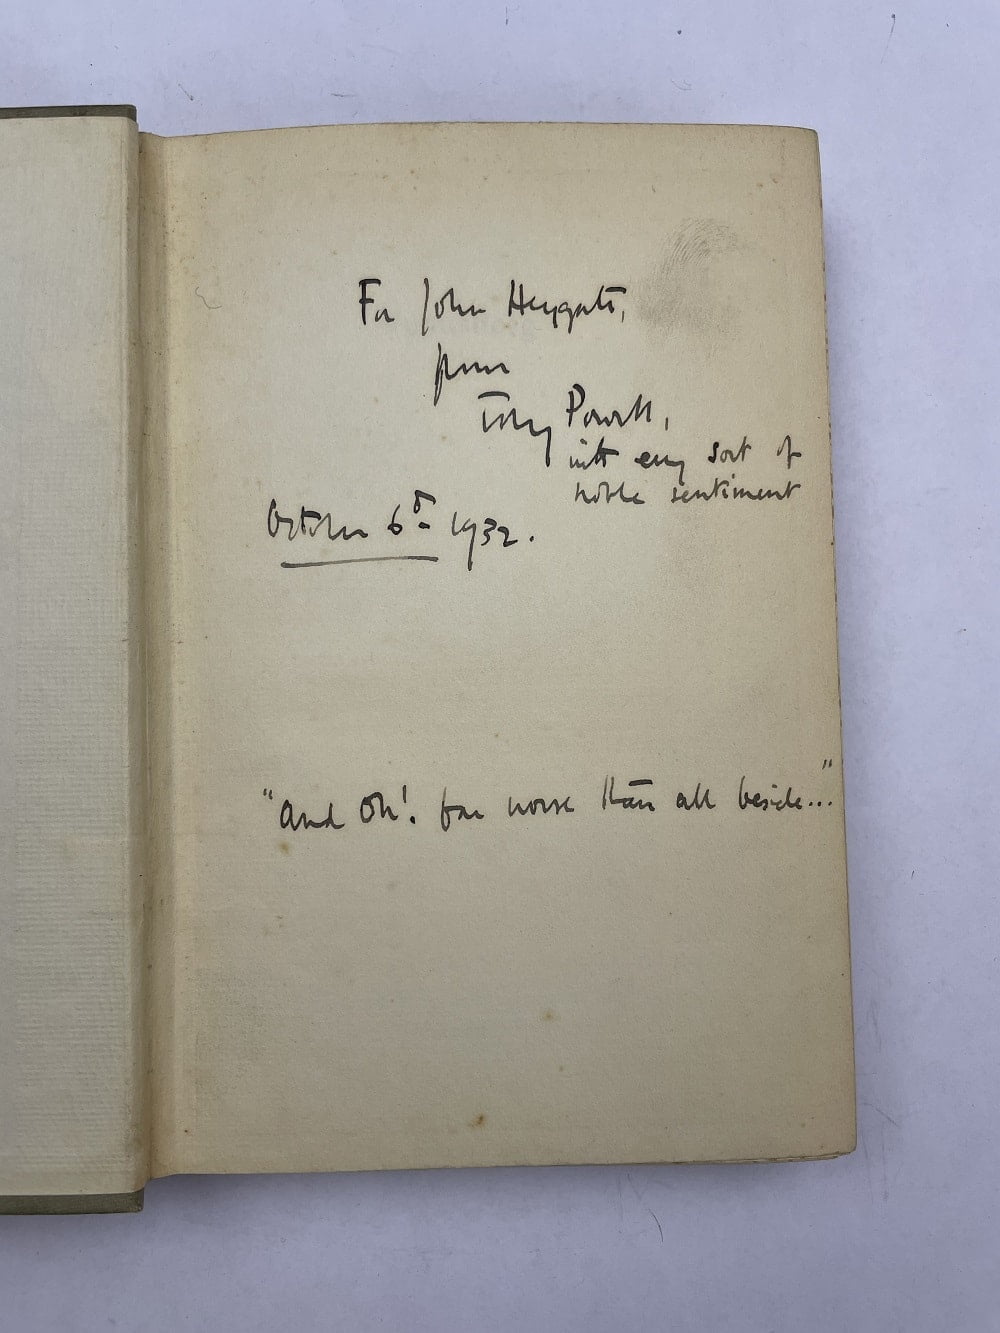 For John Heygate,
from
Tony Powell,
with every sort of
noble sentiment
October 6th 1932.
"And Oh! far worse than all beside..."